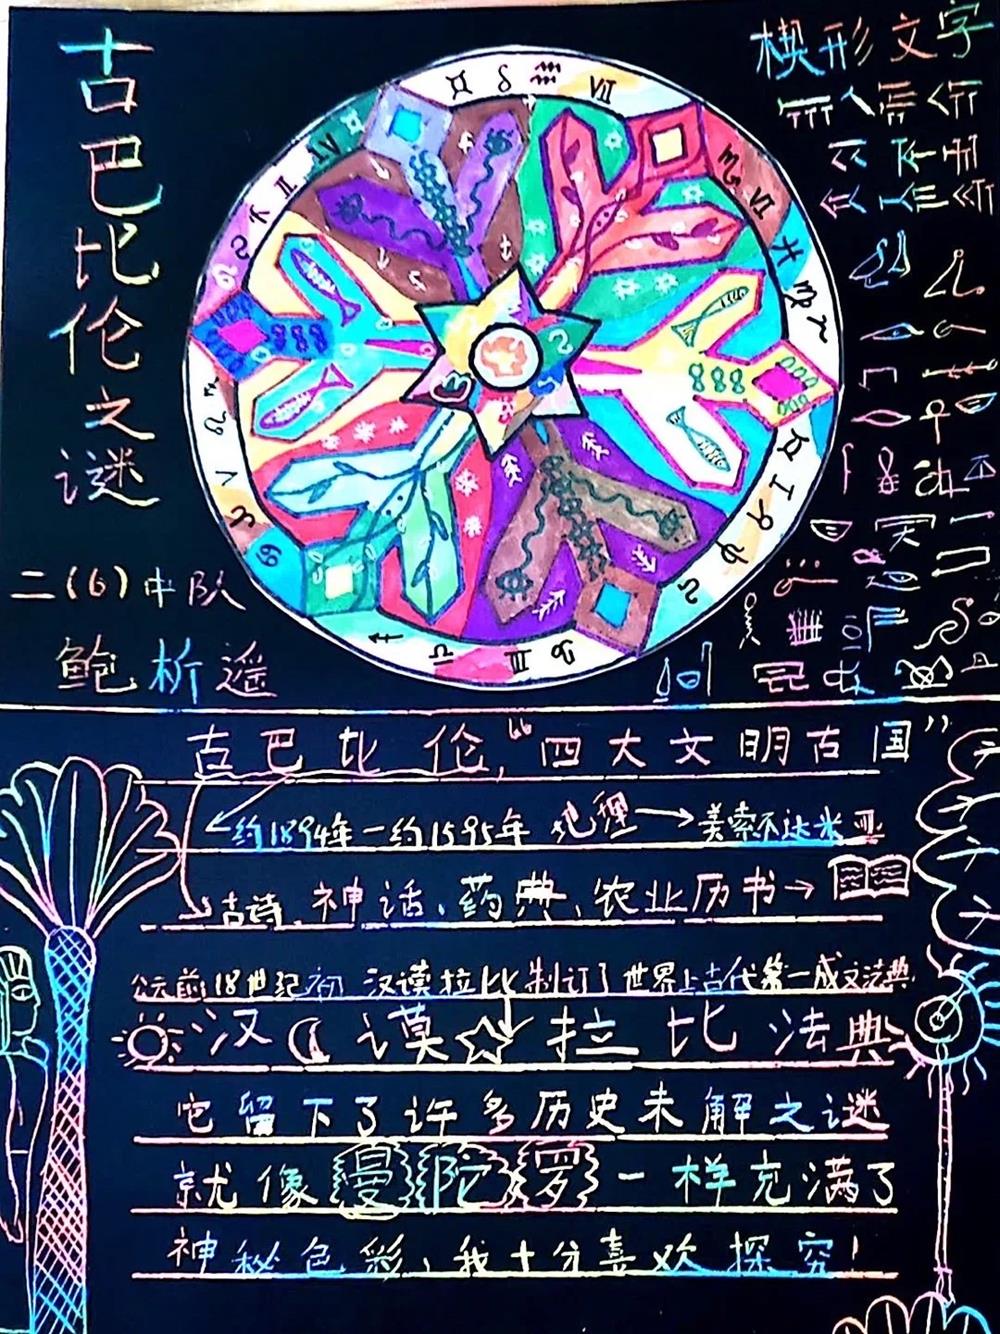 古巴比伦之谜
二(6)中队
鲍析遥
楔形文字
古巴比伦，“四大文明古国”
约1894年—约1595年 地理→美索不达米亚
古诗、神话、药典、农业历书→
公元前18世纪初 汉谟拉比制订了世界上古代第一成文法典
汉谟拉比法典
它留下了许多历史未解之谜
就像曼陀罗一样充满了
神秘色彩，我十分喜欢探究！